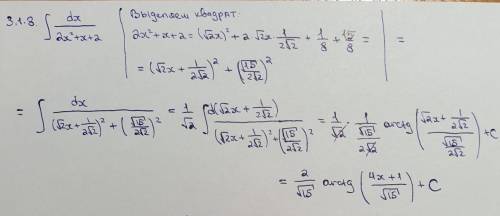 3.1.8. ∫ dx / (2x²+x+2) | Выделяем квадрат: | =
2x²+x+2 = (√2x)² + 2·√2x·1/(2√2) + 1/8 + 15/8 =
= (√2x + 1/(2√2))² + (√15/(2√2))²
= ∫ dx / ((√2x + 1/(2√2))² + (√15/(2√2))²) = 1/√2 ∫ d(√2x + 1/(2√2)) / ((√2x + 1/(2√2))² + (√15/(2√2))²) = 1/√2 · 1/(√15/(2√2)) arctg ((√2x + 1/(2√2)) / (√15/(2√2))) + C
= 2/√15 arctg ((4x+1)/√15) + C